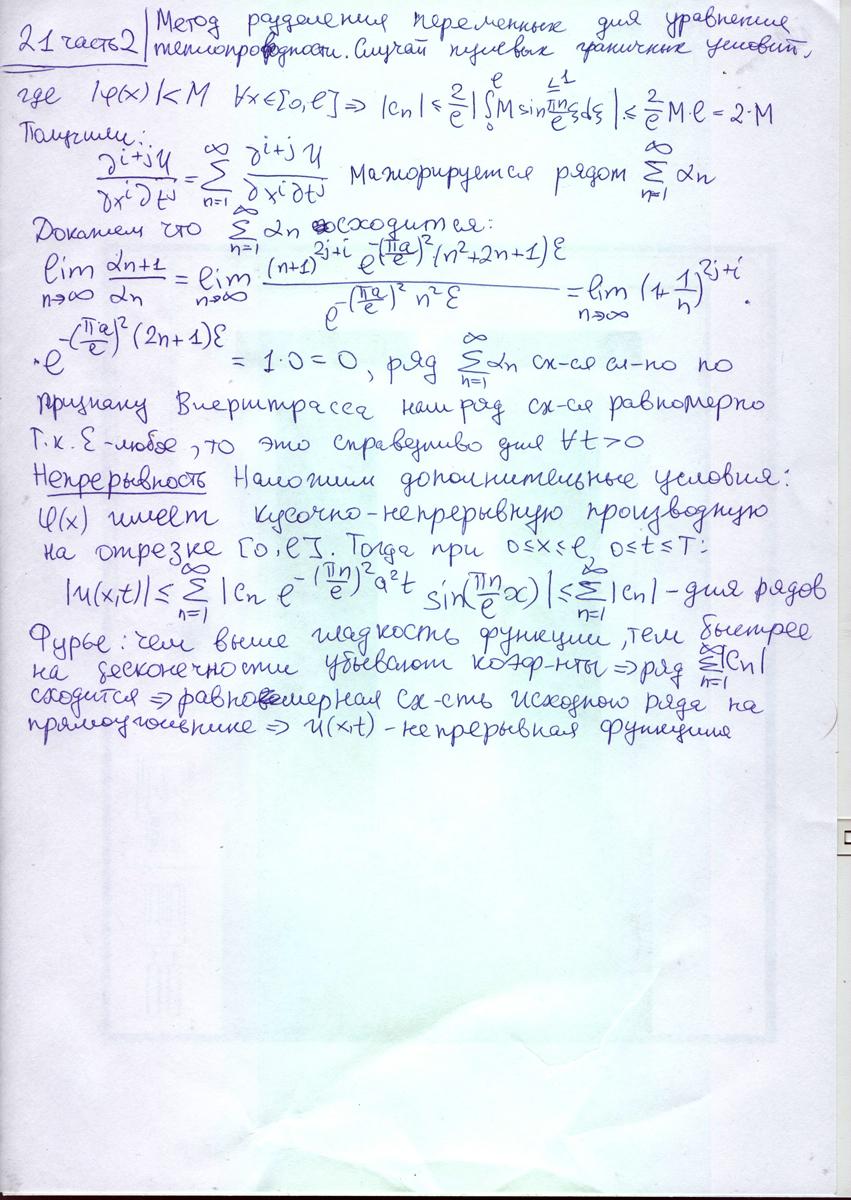 21 часть 2 | Метод разделения переменных для уравнения
теплопроводности. Случай нулевых граничных условий.
где |φ(x)| < M ∀x∈[0,l] ⇒ |Cn| ≤ 2/l |∫₀ˡ M sin πn/l ξ dξ| ≤ 2/l M·l = 2·M
≤1
Получили:
∂^(i+j)U/∂x^i∂t^j = Σ_{n=1}^∞ ∂^(i+j)U/∂x^i∂t^j мажорируется рядом Σ_{n=1}^∞ αn
Докажем что Σ_{n=1}^∞ αn сходится:
lim_{n→∞} αn+1/αn = lim_{n→∞} (n+1)^(2j+i) e^(-(πa/l)²(n²+2n+1)ε) / e^(-(πa/l)² n² ε) = lim_{n→∞} (1+1/n)^(2j+i) ·
· e^(-(πa/l)²(2n+1)ε) = 1·0 = 0, ряд Σ_{n=1}^∞ αn сх-ся сл-но по
признаку Вейерштрасса наш ряд сх-ся равномерно
Т.к. ε-любое, то это справедливо для ∀t>0
Непрерывность Наложим дополнительные условия:
φ(x) имеет кусочно-непрерывную производную
на отрезке [0,l]. Тогда при 0≤x≤l, 0≤t≤T:
|u(x,t)| ≤ Σ_{n=1}^∞ |Cn e^(-(πn/l)²a²t) sin(πn/l x)| ≤ Σ_{n=1}^∞ |Cn| - для рядов
Фурье: чем выше гладкость функции, тем быстрее
на бесконечности убывают коэф-нты ⇒ ряд Σ_{n=1}^∞ |Cn|
сходится ⇒ равномерная сх-сть исходного ряда на
прямоугольнике ⇒ u(x,t) - непрерывная функция